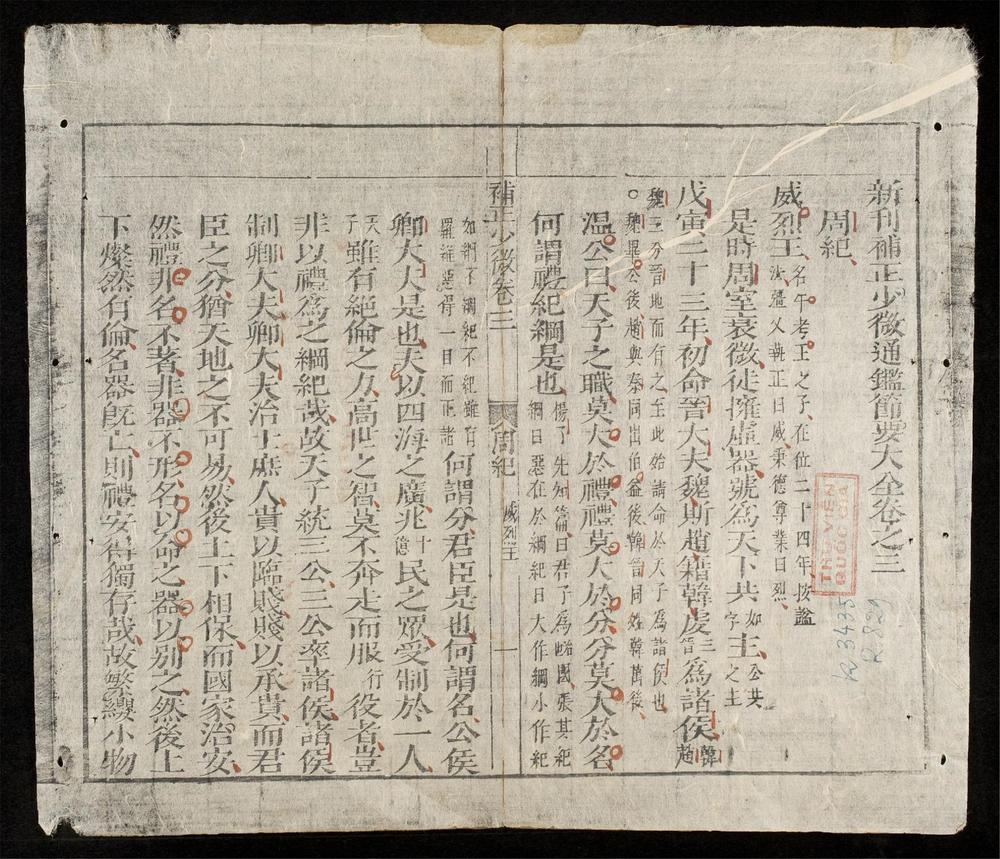 新刊補正少微通鑑節要大全卷之三
周紀
威烈王名午考王之子在位二十四年按諡
法彊乂執正曰威秉德尊業曰烈
是時周室衰微徒擁虛器號爲天下共如字主公共之主
戊寅二十三年初命晉大夫魏斯趙籍韓虔三晉爲諸侯韓趙
魏三分晉地而有之至此始請命於天子爲諸侯也
魏畢公後趙與秦同出伯益後韓晉同姓韓萬後
溫公曰天子之職莫大於禮禮莫大於分分莫大於名
何謂禮紀綱是也楊子先知篇曰君子爲國張其紀
綱曰惡在於綱紀曰大作綱小作紀
補正少微卷三
周紀
威烈王
一
如網不綱紀不紀雖有
羅惡得一目而正諸
何謂分君臣是也何謂名公侯
卿大夫是也夫以四海之廣兆十億民之眾受制於一人
天子雖有絕倫之力高世之智莫不奔走而服行役者豈
非以禮爲之綱紀哉故天子統三公三公率諸侯諸侯
制卿大夫卿大夫治士庶人貴以臨賤賤以承貴而君
臣之分猶天地之不可易然後上下相保而國家治安
然禮非名不著非器不形名以命之器以別之然後上
下燦然有倫名器既亡則禮安得獨存哉故繁纓小物
THƯ VIỆN
QUỐC GIA
R 3435
R. 829